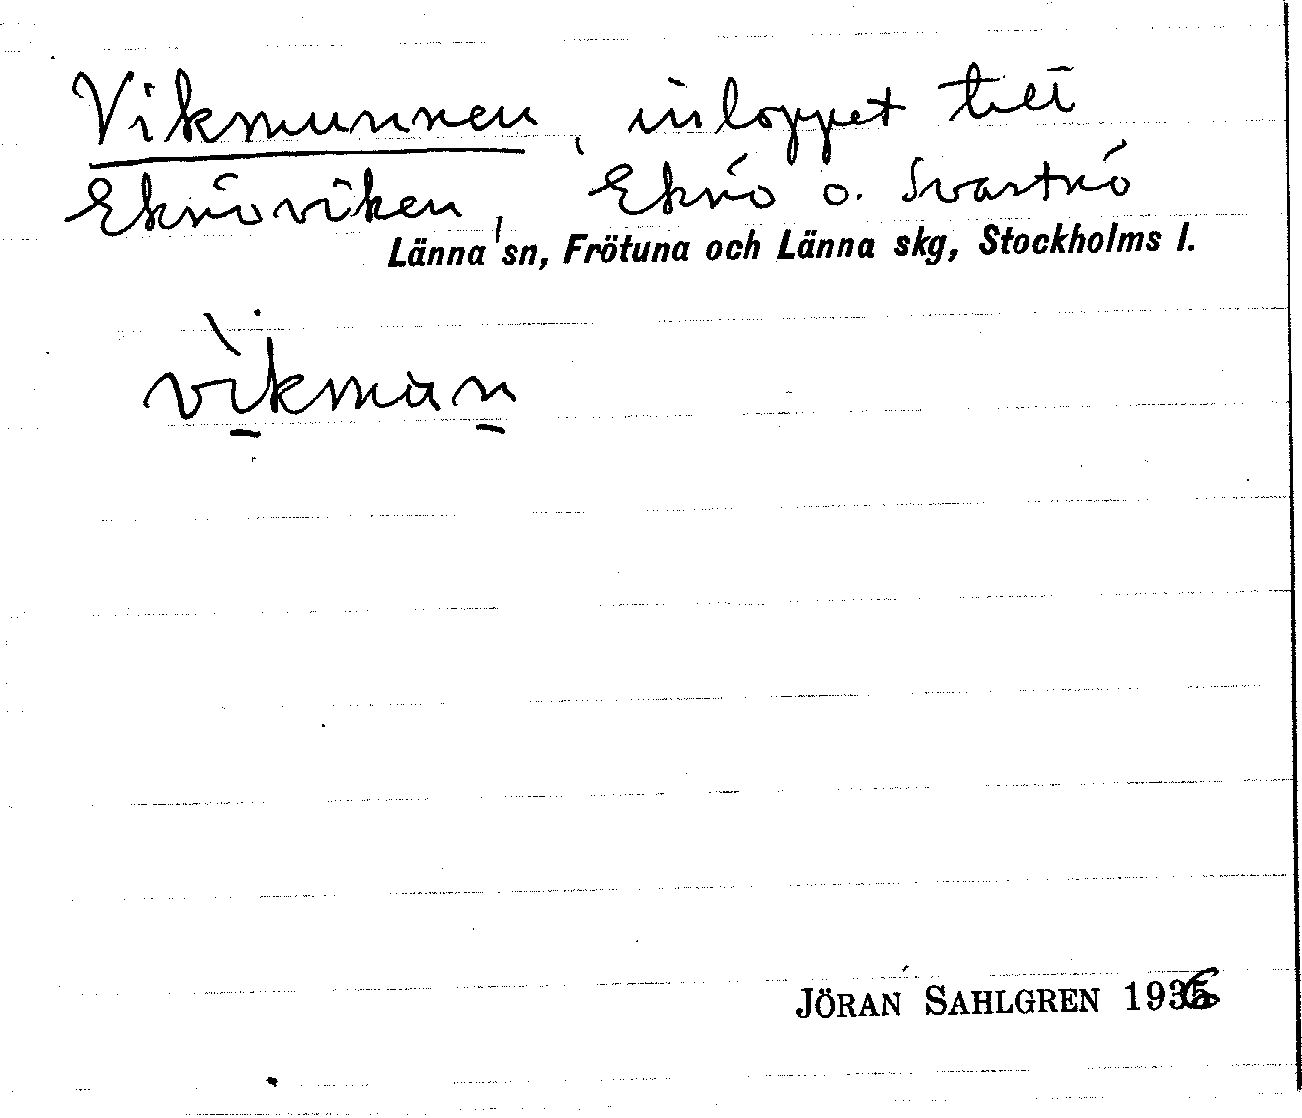 Vikmunnen, inloppet till
Eknöviken, Eknö o. Svartnö
Länna sn, Frötuna och Länna skg, Stockholms l.
vìkmun
JÖRAN SAHLGREN 1936